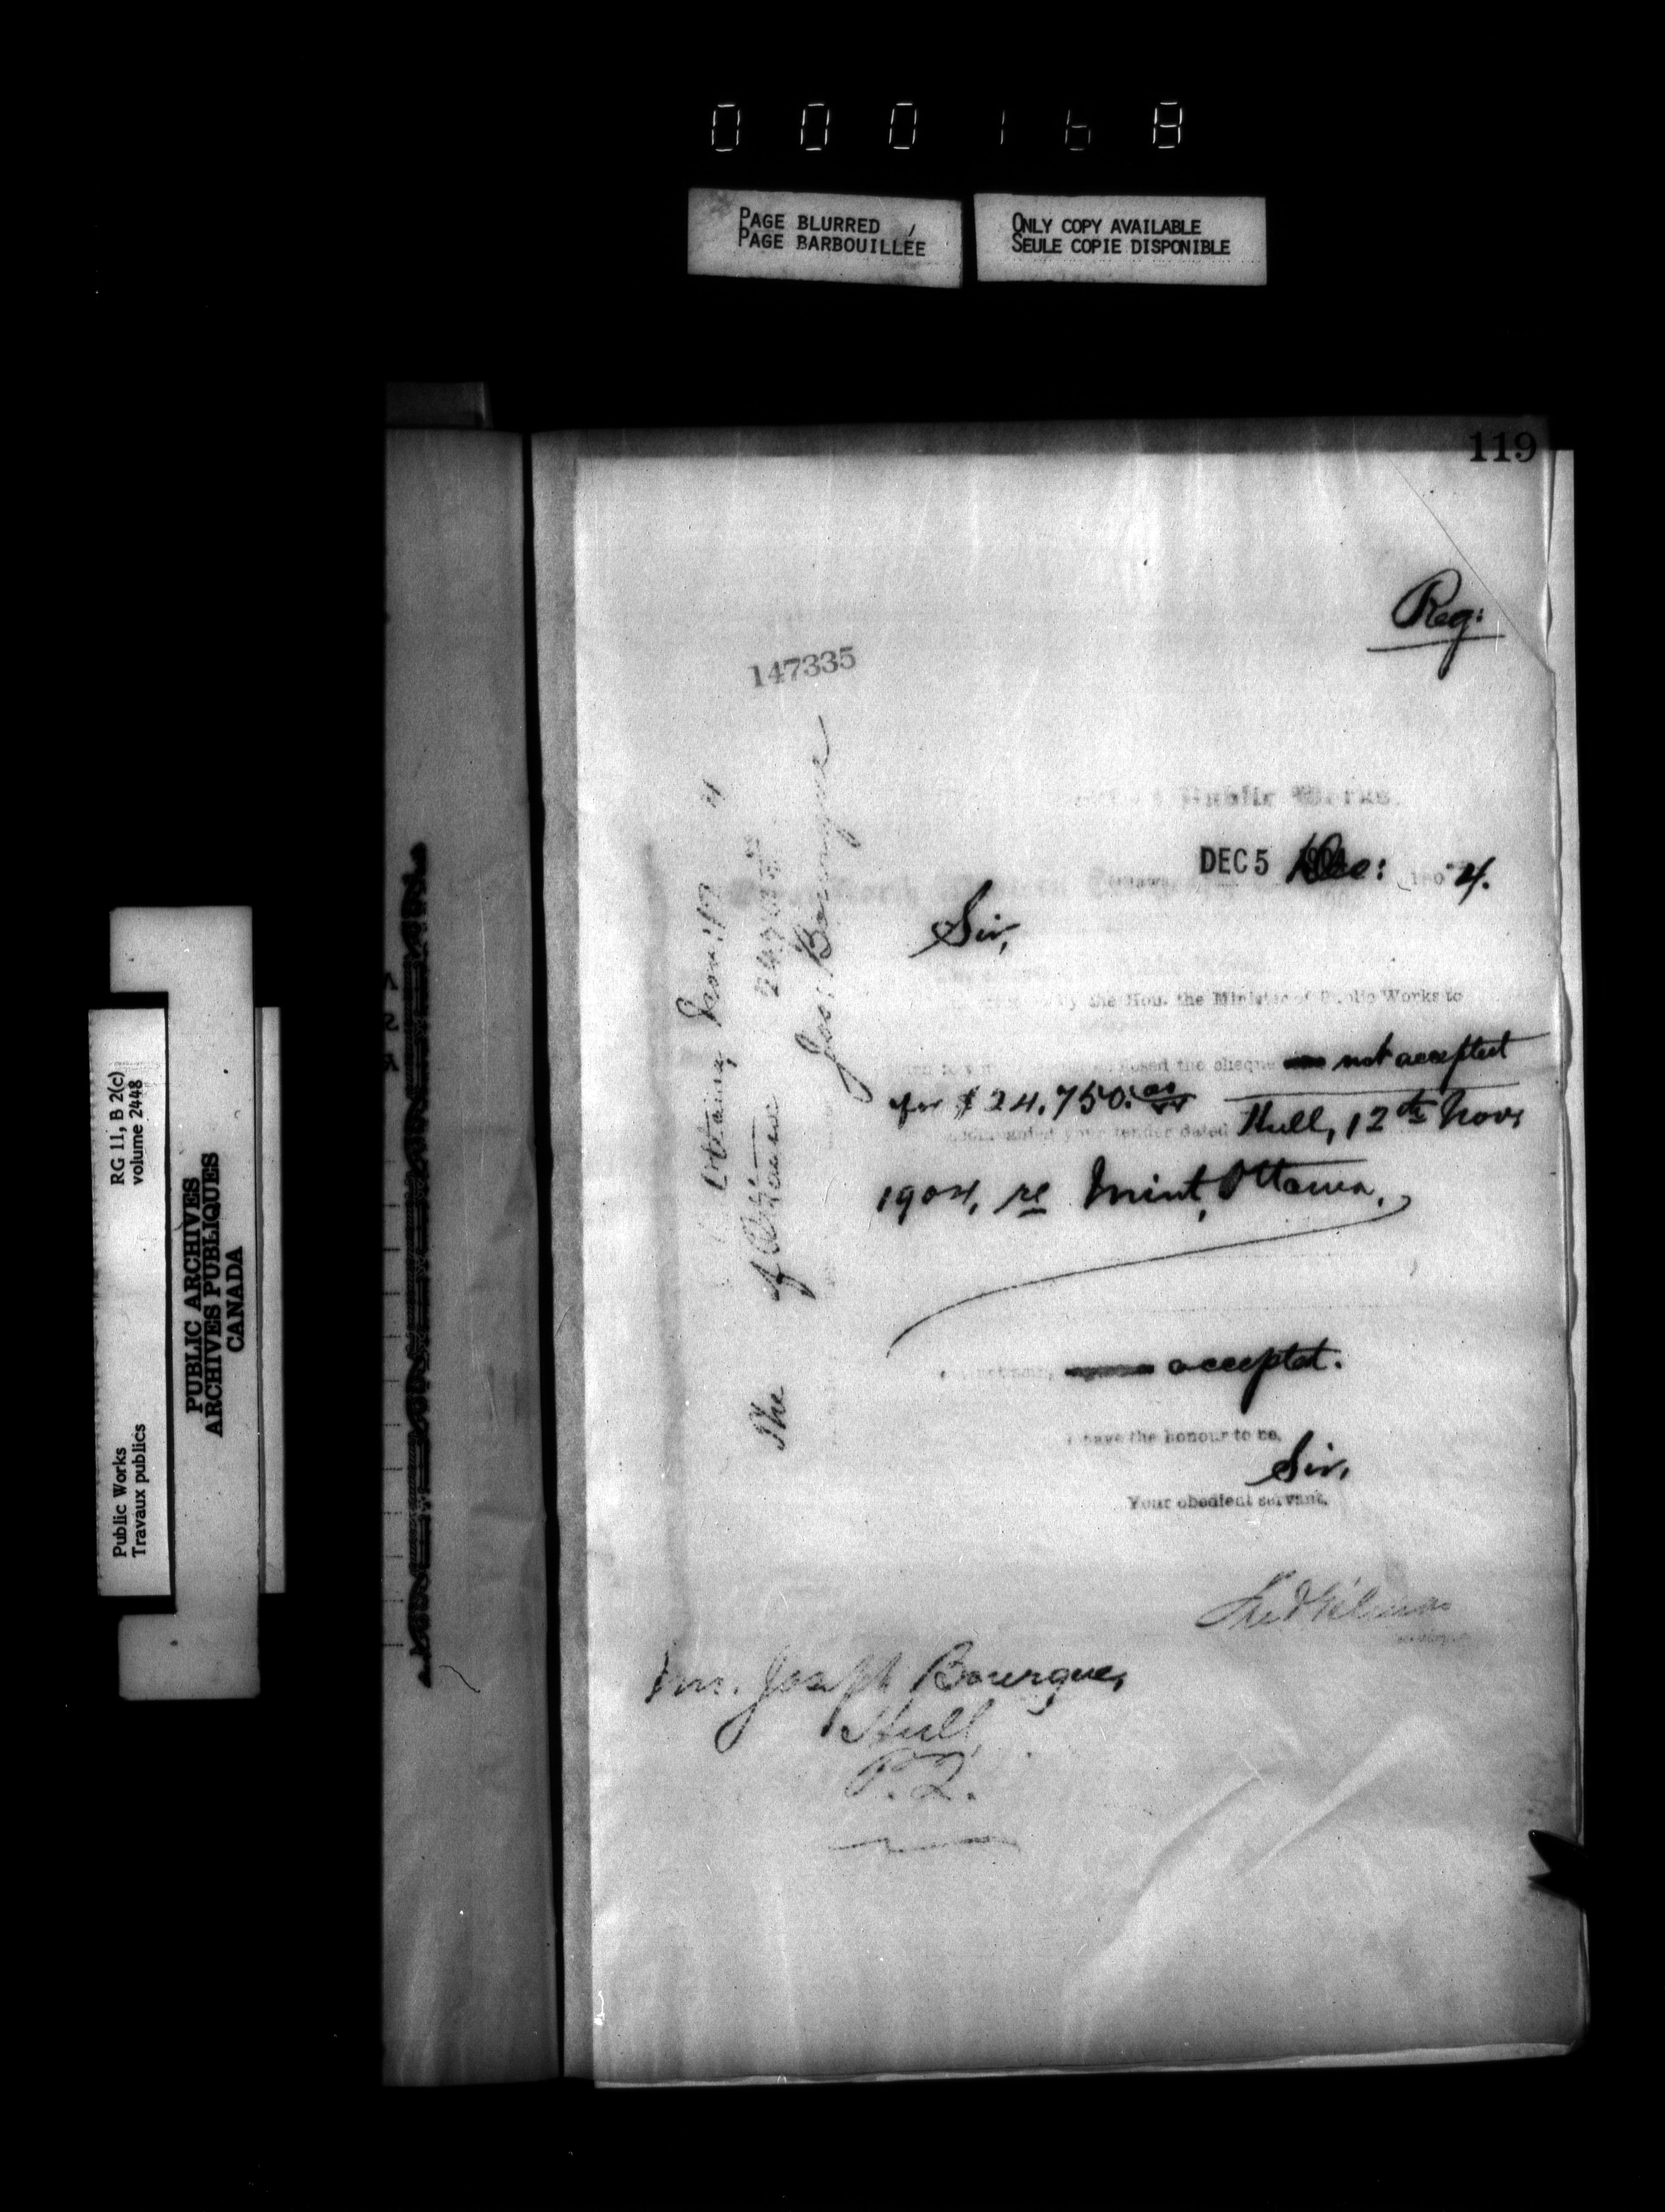 000168
PAGE BLURRED
PAGE BARBOUILLÉE
ONLY COPY AVAILABLE
SEULE COPIE DISPONIBLE
119
Reg:
147335
Public Works.
DEC 5 1904 Dec: 190 4.
Sir,
by the Hon. the Minister of Public Works to
the cheque not accepted
for $24.750.00
your tender dated Hull, 12th Nov.
1904, re Mint, Ottawa.
accepted.
I have the honour to be,
Sir,
Your obedient servant,
Mr. Joseph Bourque,
Hull,
P.Q.
Ottawa, Nov: 17 4
The of Ottawa 24750
Jos: Bourque
RG 11, B 2(c)
volume 2448
Public Works
Travaux publics
PUBLIC ARCHIVES
ARCHIVES PUBLIQUES
CANADA